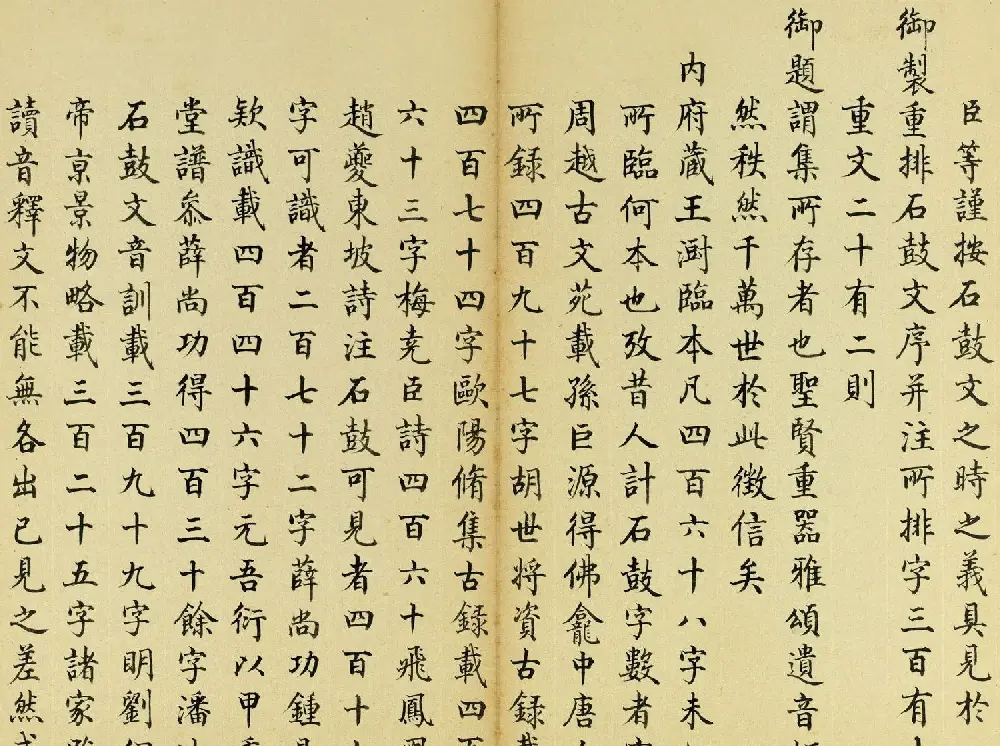 臣等謹按石鼓文之時之義具見於
御製重排石鼓文序并注所排字三百有
重文二十有二則
御題謂集所存者也聖賢重器雅頌遺音
然秩然千萬世於此徵信矣
内府藏王澍臨本凡四百六十八字未
所臨何本也攷昔人計石鼓字數者
周越古文苑載孫巨源得佛龕中唐
所録四百九十七字胡世将資古録
四百七十四字歐陽脩集古録載四百
六十三字梅堯臣詩四百六十飛鳳
趙夔東坡詩注石鼓可見者四百十
字可識者二百七十二字薛尚功鍾
欵識載四百四十六字元吾衍以甲
堂譜叅薛尚功得四百三十餘字潘
石鼓文音訓載三百九十九字明劉侗
帝京景物略載三百二十五字諸家
讀音釋文不能無各出己見之差然